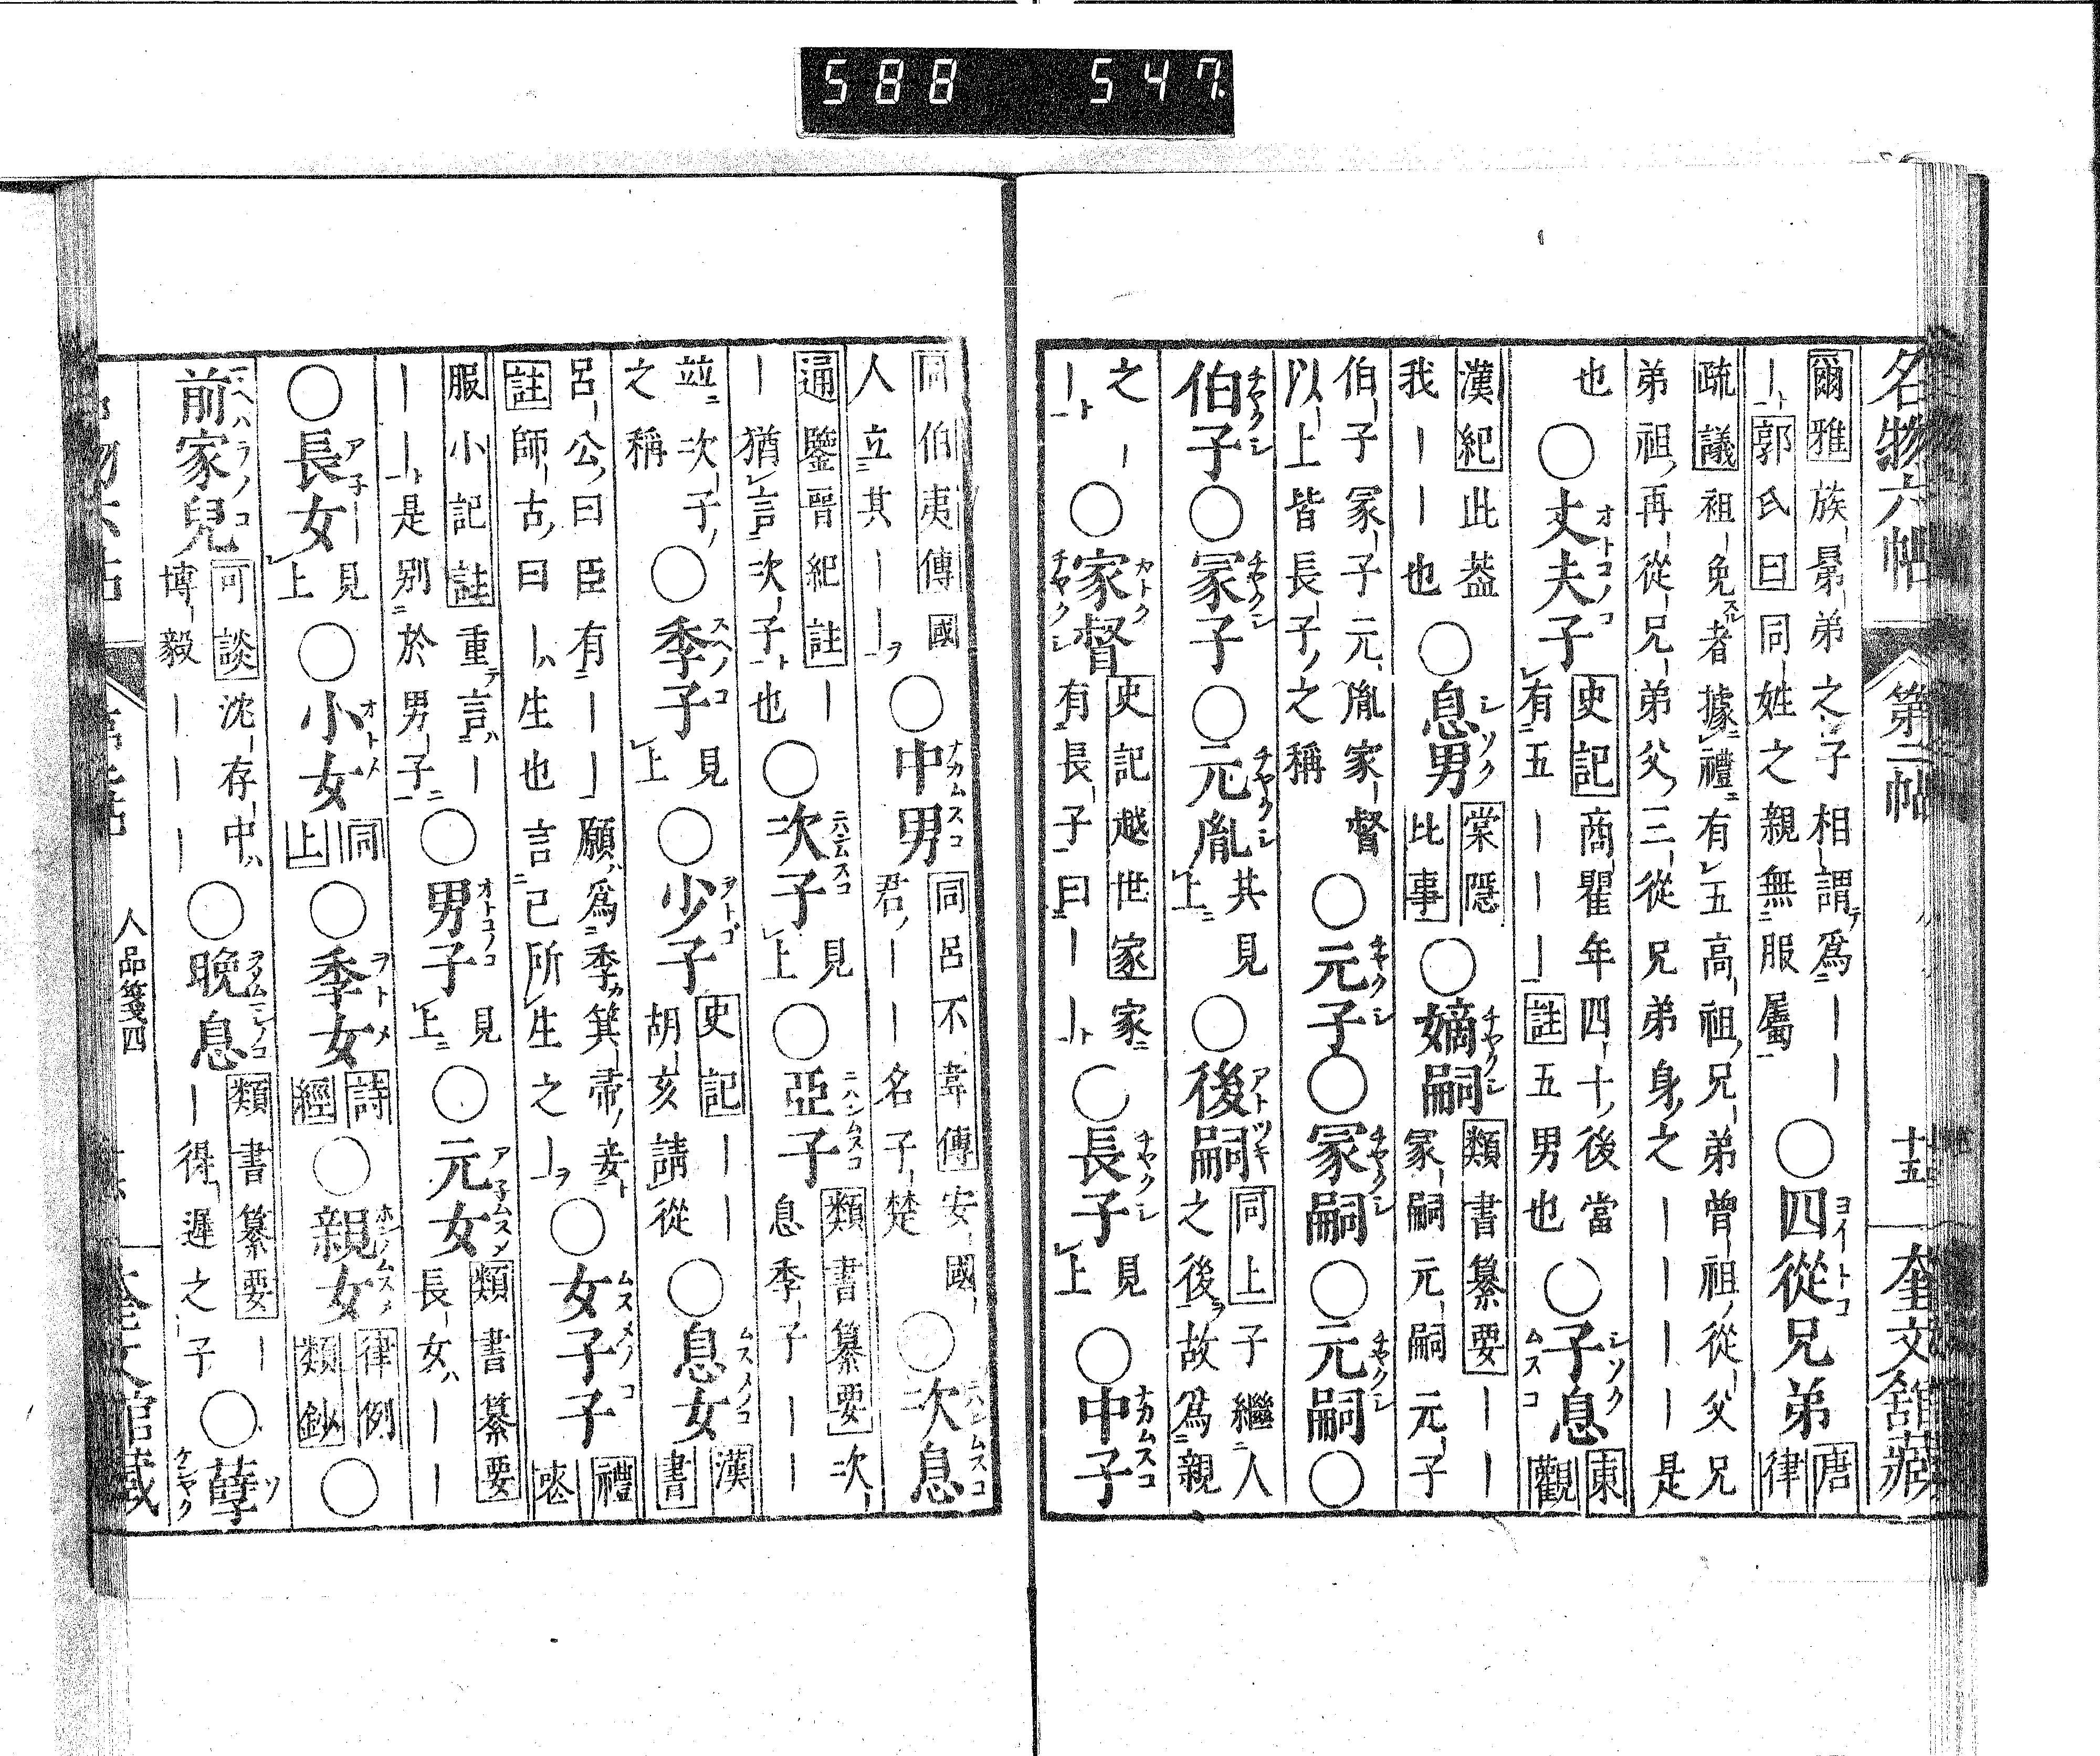 588 547.
名物六帖 第二帖 十五 奎文舘藏
爾雅族晜弟之子相謂爲｜｜
｜郭氏曰同姓之親無服屬
○四從兄弟 唐律
疏議袒免者據禮有五高祖兄弟曾祖從父兄
弟祖再從兄弟父三從兄弟身之｜｜｜｜是
也○丈夫子 史記商瞿年四十後當
有五｜｜｜註五男也
○子息 東觀
漢紀此蓋
我｜｜也
○息男 棠隱比事
○嫡嗣 類書纂要｜｜
冢嗣元嗣元子
伯子冢子元胤家督
以上皆長子之稱
○元子○冢嗣○元嗣○
伯子○冢子○元胤 其見上
○後嗣 同上子繼人
之後故爲親
之｜
｜○家督 史記越世家家
有長子曰｜｜
○長子 見上○中子
同伯夷傳國
人立其｜｜
○中男 同呂不韋傳安國
君｜｜名子楚
○次息
通鑒晉紀註｜
｜猶言次子也
○次子 見上
○亞子 類書纂要次
息季子｜｜
並次子
之稱
○季子 見上
○少子 史記｜｜
胡亥請從
○息女 漢書
呂公曰臣有｜｜願爲季箕帚妾
註師古曰｜生也言己所生之｜
○女子子 禮喪
服小記註重言｜
｜｜是別於男子
○男子 見上
○元女 類書纂要
長女｜｜
○長女｜見上
○小女 同上
○季女 詩經
○親女 律例類鈔
○
前家兒 可談沈存中
博毅｜｜｜
○晚息 類書纂要｜
｜得遲之子
○孽
人品箋四